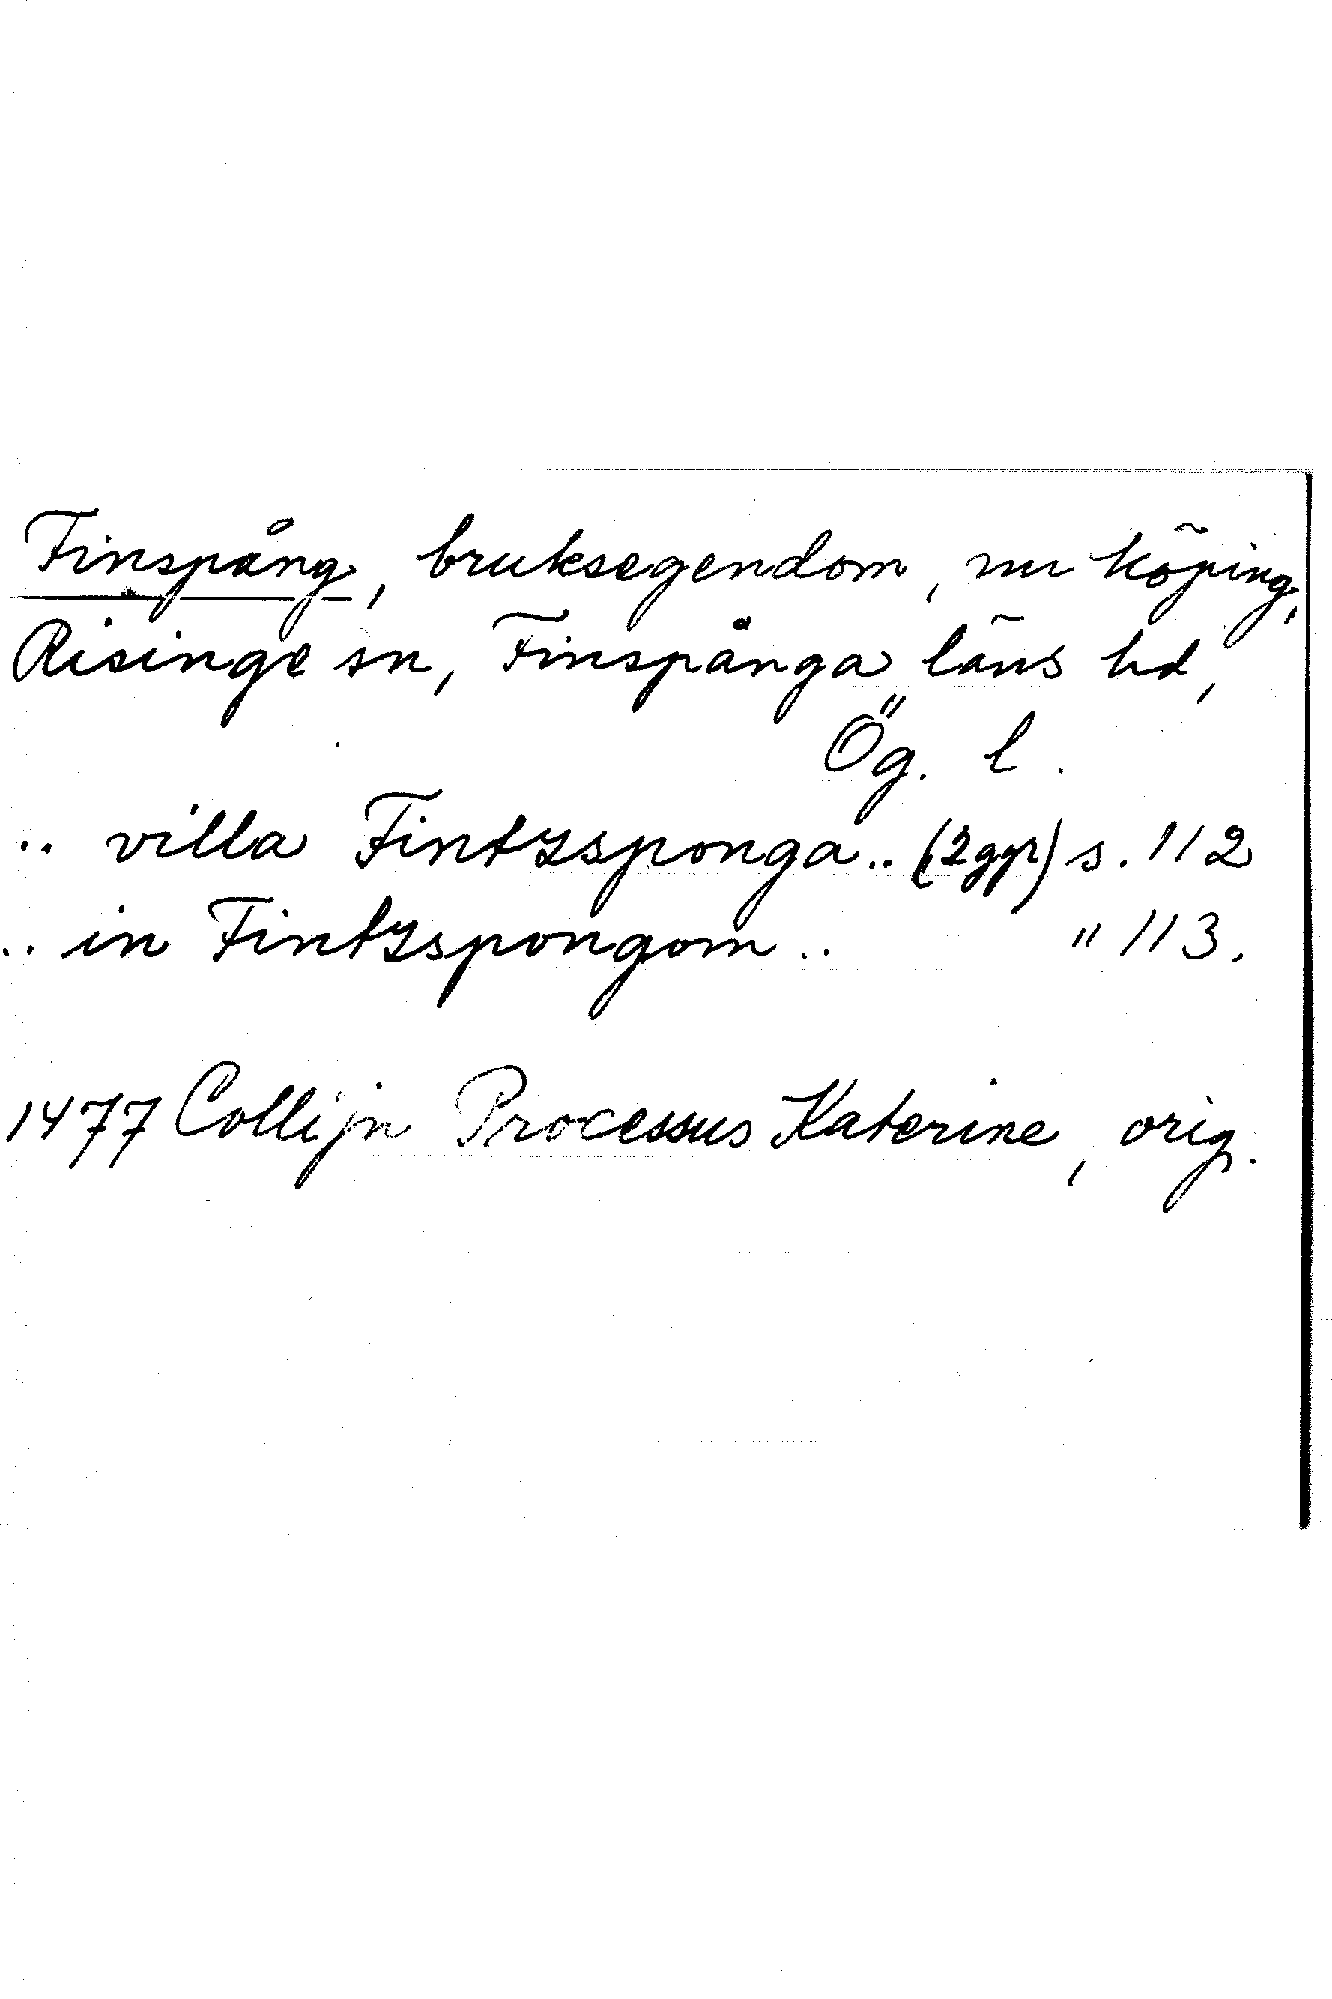 Finspång, bruksegendom, nu köping,
Risinge sn, Finspånga läns hd,
Ög. l.
.. villa Fintzsponga .. (2ggr) s. 112
.. in Fintzspongom .. " 113.
1477 Collijn Processus Katerine, orig.